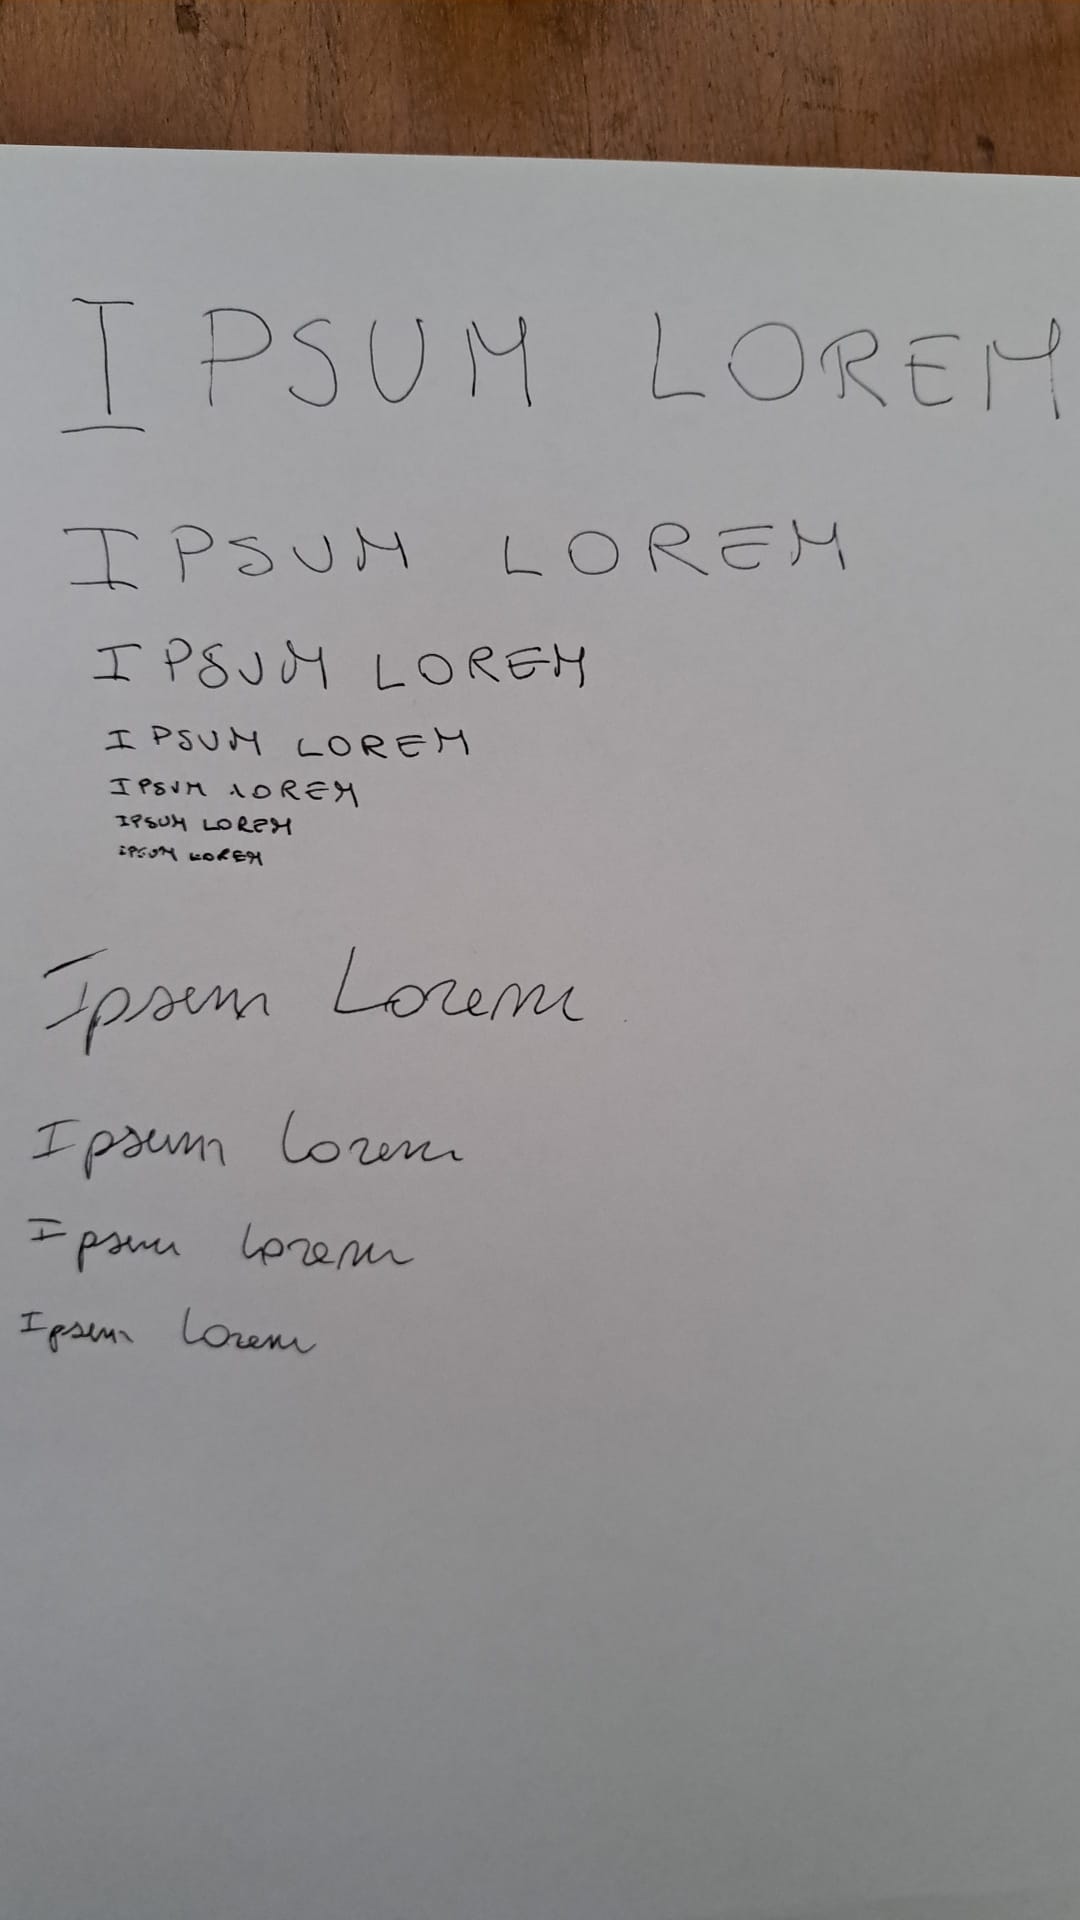 IPSUM LOREM
IPSUM LOREM
IPSUM LOREM
IPSUM LOREM
IPSUM LOREM
IPSUM LOREM
IPSUM LOREM
Ipsum Lorem
Ipsum Lorem
Ipsum Lorem
Ipsum Lorem